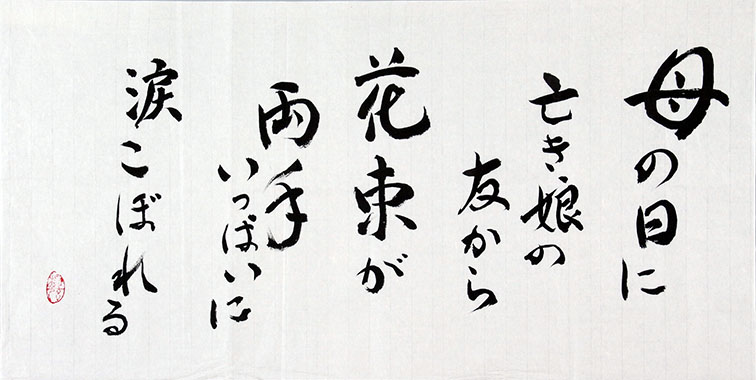 母の日に
亡き娘の
友から
花束が
両手
いっぱいに
涙こぼれる